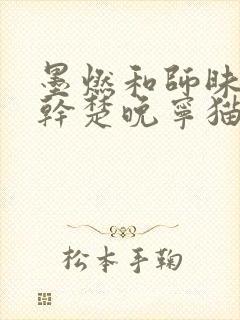 墨燃和師昧
幹楚晚寧猫
松本手鞠